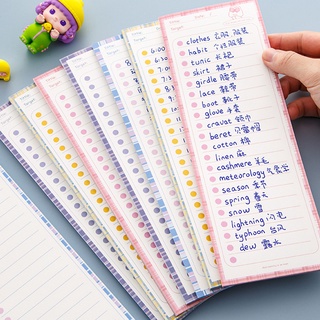 clothes 衣服 服装
habit 服装
tunic 长袍
skirt 裙子
girdle 腰带
lace 鞋带
boot 靴子
glove 手套
cravat 领巾
beret 贝雷帽
cotton 棉
linen 麻
cashmere 羊毛
meteorology 气象学
season 季节
spring 春天
snow 雪
lightning 闪电
typhoon 台风
dew 露水